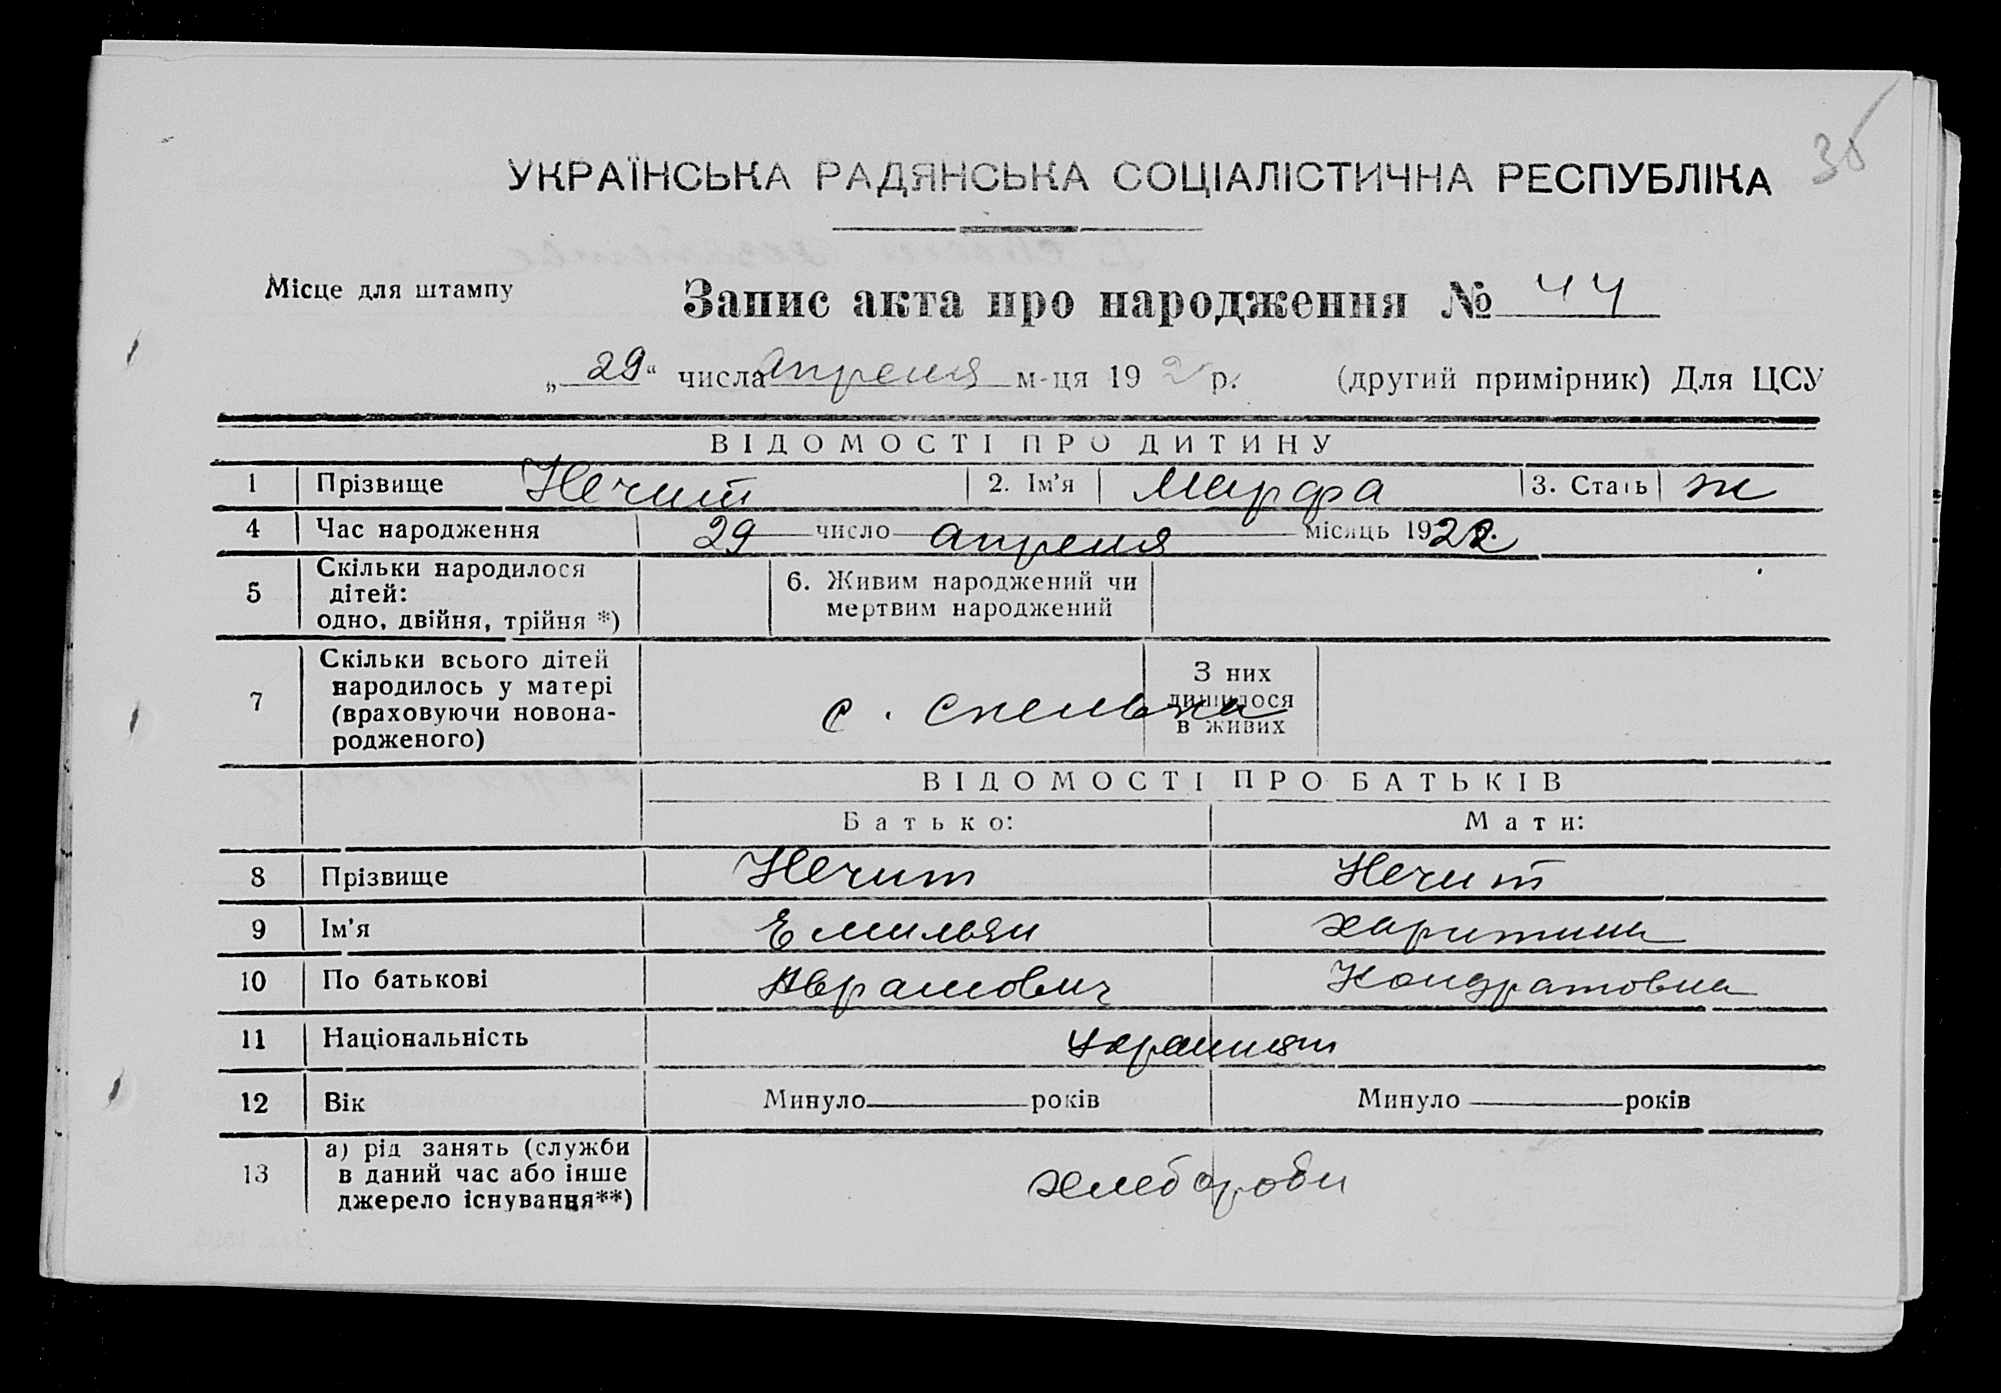 35
УКРАЇНСЬКА РАДЯНСЬКА СОЦІАЛІСТИЧНА РЕСПУБЛІКА
Місце для штампу
Запис акта про народження № 44
„29“ числа Апреля м-ця 192 р. (другий примірник) Для ЦСУ
ВІДОМОСТІ ПРО ДИТИНУ
1 Прізвище Нечит 2. Ім'я Марфа 3. Стать ж
4 Час народження 29 число апреля місяць 1922.
5 Скільки народилося дітей: одно, двійня, трійня *) 6. Живим народжений чи мертвим народжений
7 Скільки всього дітей народилось у матері (враховуючи новонародженого) с. З них лишилося в живих
ВІДОМОСТІ ПРО БАТЬКІВ
Батько: Мати:
8 Прізвище Нечит Нечит
9 Ім'я Емильян харитина
10 По батькові Аврамович Кондратовна
11 Національність
12 Вік Минуло років Минуло років
13 а) рід занять (служби в даний час або інше джерело існування**) хлебороби